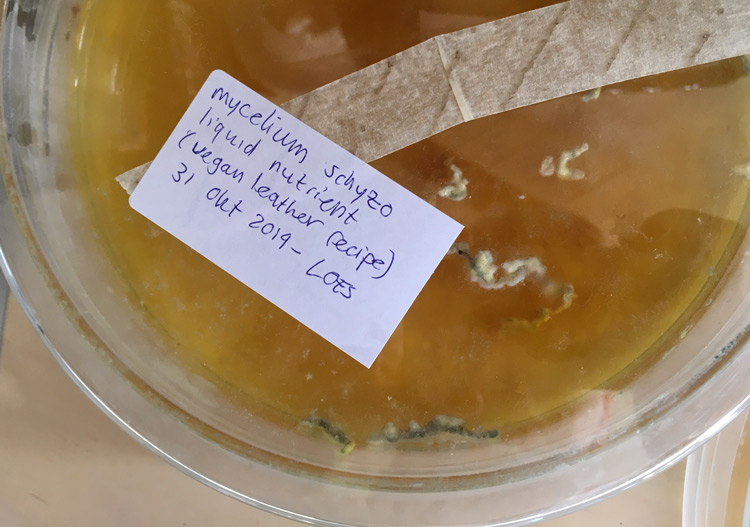 mycelium schyzo
liquid nutrient
(vegan leather recipe)
31 okt 2019 - LOES